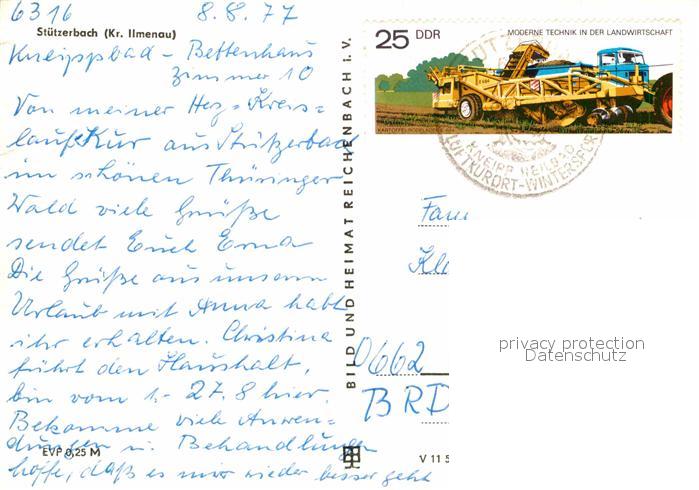 6316 8.8.77
Stützerbach (Kr. Ilmenau)
Kneippbad - Bettenhaus
Zimmer 10
Von meiner Herz-Kreis=
laufKur aus Stützerbach
im schönen Thüringer
Wald viele Grüße
sendet Euch Erna
Die Grüße aus unserm
Urlaub mit Anna habt
ihr erhalten. Christina
führt den Haushalt,
bin vom 1.-27.8 hier.
Bekomme viele Anwen=
dungen u. Behandlungen
hoffe, daß es mir wieder besser geht
EVP 0,25 M
BILD UND HEIMAT REICHENBACH i. V.
V 11 5
25 DDR
MODERNE TECHNIK IN DER LANDWIRTSCHAFT
KNEIPP HEILBAD
LUFTKURORT-WINTERSPORT
Fam
Kl
0662
BRD
privacy protection
Datenschutz